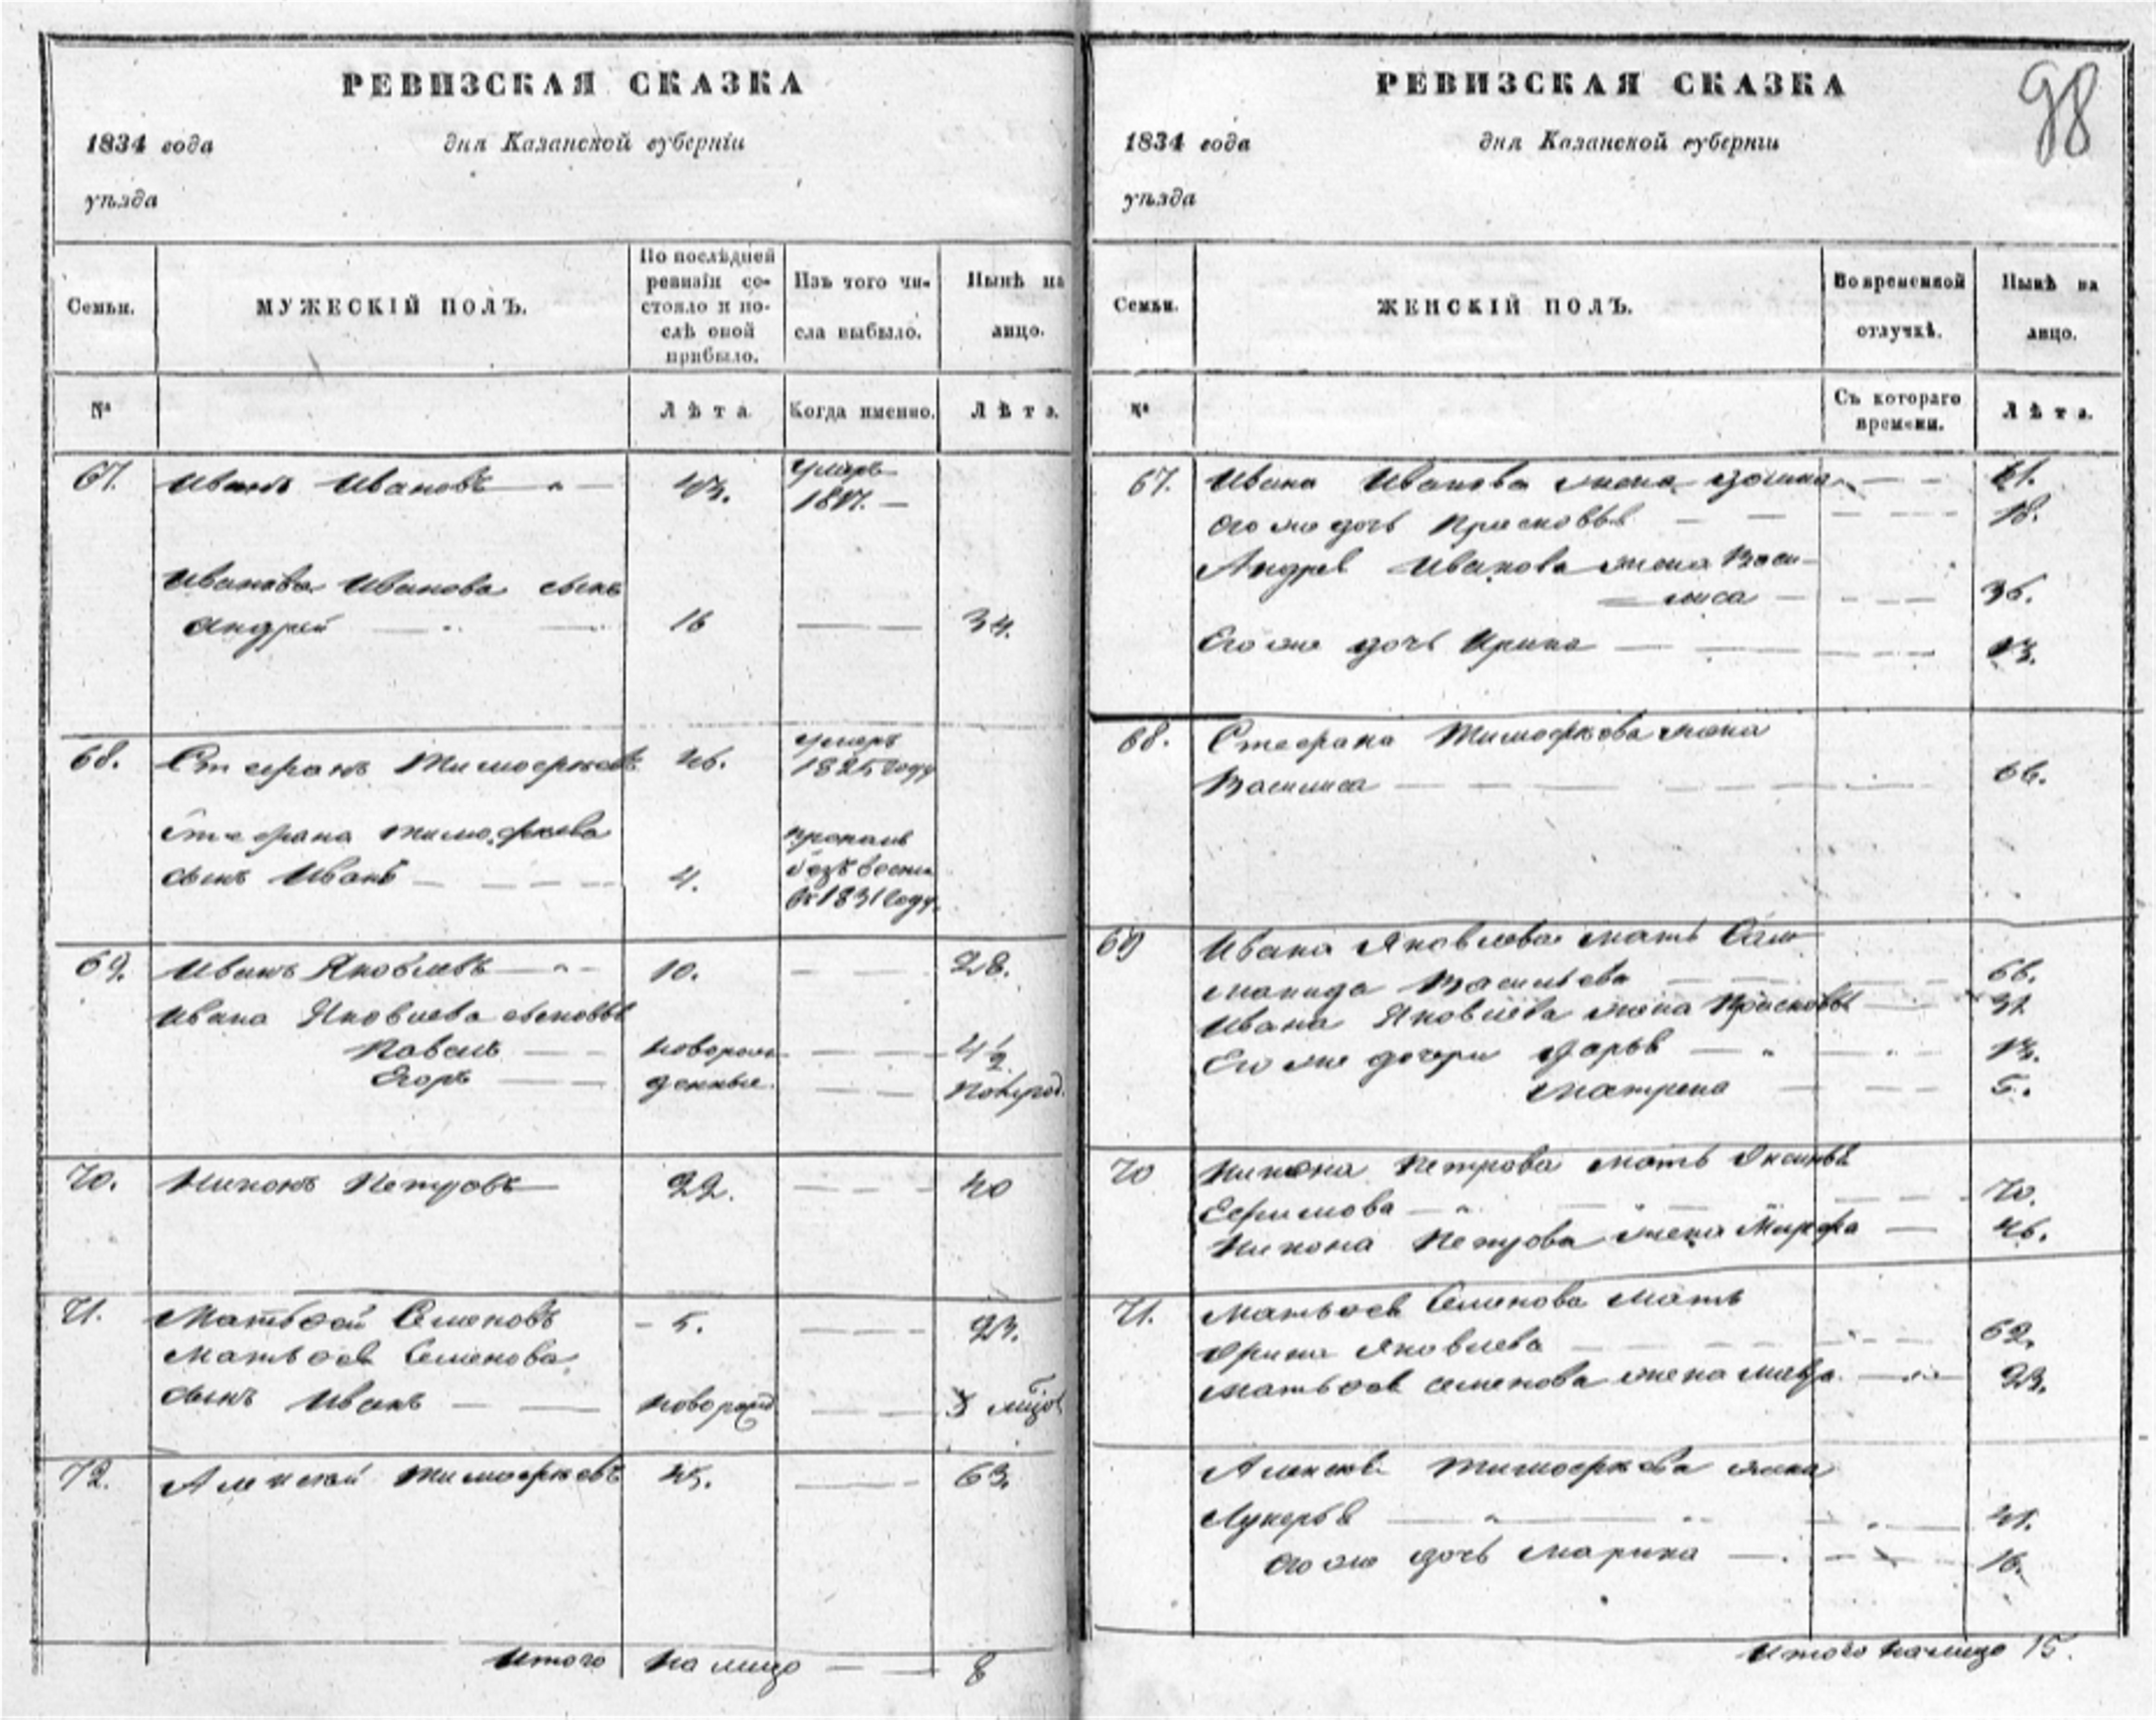 РЕВИЗСКАЯ СКАЗКА
1834 года дня Казанской губернiи
уѣзда
Семьи.
МУЖЕСКIЙ ПОЛЪ.
По послѣдней
ревизiи со-
стояло и по-
слѣ оной
прибыло.
Изъ того чи-
сла выбыло.
Нынѣ на
лицо.
№
Лѣта
Когда именно.
Лѣта.
67. Иванъ Ивановъ 43. умеръ
Иванова Иванова сынъ
Андрей 16 34.
68. Стефанъ Тимофѣевъ 46. умеръ
1825 году
Стефана Тимофѣева пропалъ
сынъ Иванъ 4. безъ вести
въ 1831 году.
69. Иванъ Яковлевъ 10. 28.
Ивана Яковлева сыновья
Павелъ новорож 4½
Егоръ денные. Новрож.
70. Никонъ Петровъ 22. 40
71. Матвѣй Семеновъ 5. 23.
Матвѣя Семенова
сынъ Иванъ новорожд
72. Алексѣй Тимофѣевъ 45. 63.
Итого на лицо 8
РЕВИЗСКАЯ СКАЗКА
98
1834 года дня Казанской губернiи
уѣзда
Семьи.
ЖЕНСКIЙ ПОЛЪ.
Во временной
отлучкѣ.
Нынѣ на
лицо.
№
Съ котораго
времени.
Лѣта.
67. Ивана Иванова жена 61.
его же дочь Прасковья 18.
Андрея Иванова жена Васи-
лиса 36.
Его же дочь Ирина 13.
68. Стефана Тимофѣева жена
Василиса 66.
69 Ивана Яковлева мать Соло
манида Васильева 66.
Ивана Яковлева жена Прасковья
Его же дочери Дарья 13.
Матрена 5.
70 Никона Петрова мать Аксинья
Ефимова 70.
Никона Петрова жена Марфа 46.
71. Матвѣя Семенова мать
Арина Яковлева 62.
Матвѣя Семенова жена Мавра 23.
Алексѣя Тимофѣева жена
Лукерья 41.
его же дочь Марина 16.
Итого налицо 15.